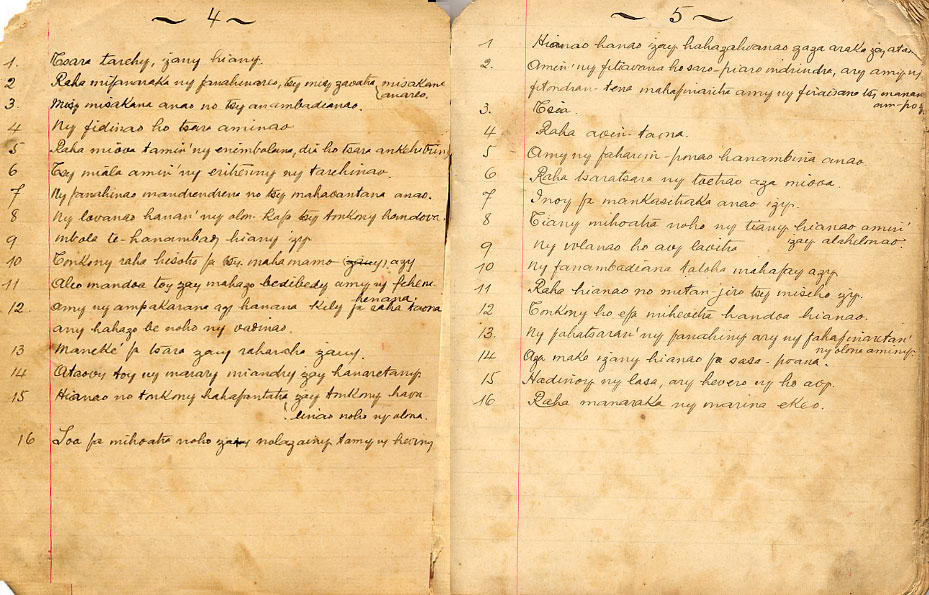 ~ 4 ~
1. Tsara tarehy, izany hiany.
2 Raha mifanaraka ny fanahinareo, tsy misy zavatra misakana
anareo.
3. Misy misakana anao no tsy anambadianao.
4 Ny fidinao ho tsara aminao
5 Raha miova tamin' ny enimbolana, dia ho tsara
6 Tsy miala amin' ny eritreriny ny tarehinao.
7 Ny fanahinao mandrendrena no tsy mahavantana anao.
8 Ny lovanao hanan' ny olon-kafa tsy tonkony handova.
9 mbola te-hanambady hiany izy
10 Tonkony raha hisotro fa tsy mahamamo izany azy
11 Aleo mandoa toy zay mahazo bedibedy amy ny fehem-
henatra.
12 amy ny ampakarana azy hanana kely fa raha taona
any hahazo be noho ny vadinao.
13 Maneké fa tsara zany raharaha zany.
14 Ataovy toy ny marary miandry zay hanaretany
15 Hianao no tonkony hahafantatra zay tonkony hava
linao noho ny olona.
16 Loa fa mihoatra noho zany nolazainy tamy ny
~ 5 ~
1 Hianao hanao izay hahazahoanao zaza araka zay atao
2. Amin' ny fitiavana ho saro-piaro indrindra, ary amy ny
fitondran-tena mahafinaritra amy ny firaisana tsy manan
am-po
3. Tsia.
4 Raha avin-taona.
5 Amy ny faharoin-ponao hanambina anao.
6 Raha tsaratsara ny toetrao aza miova.
7 Inoy fa mankasitraka anao izy.
8 Tiany mihoatra noho ny tiany hianao amin'
izay alahelonao.
9 Ny volanao ho avy lavitra
10 Ny fanambadiana taloha mahafay azy
11 Raha hianao no mitan-jiro tsy miseho izy.
12 Tonkony ho efa mihevitra handoa hianao.
13. Ny fahatsaran' ny fanahiny ary ny fahafinaretan'
ny olona aminy.
14 Aza maka izany hianao fa sasa-poana.
15 Hadinoy ny lasa, ary hevero ny ho avy.
16 Raha manaraka ny marina ekeo.